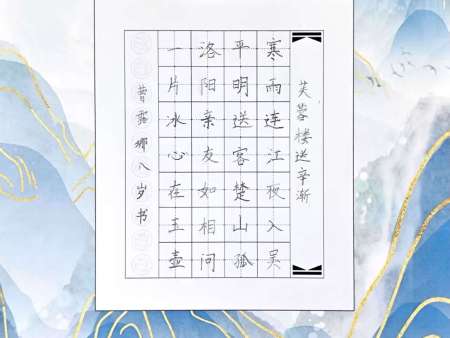 芙蓉楼送辛渐
寒雨连江夜入吴
平明送客楚山孤
洛阳亲友如相问
一片冰心在玉壶
曹露娜八岁书